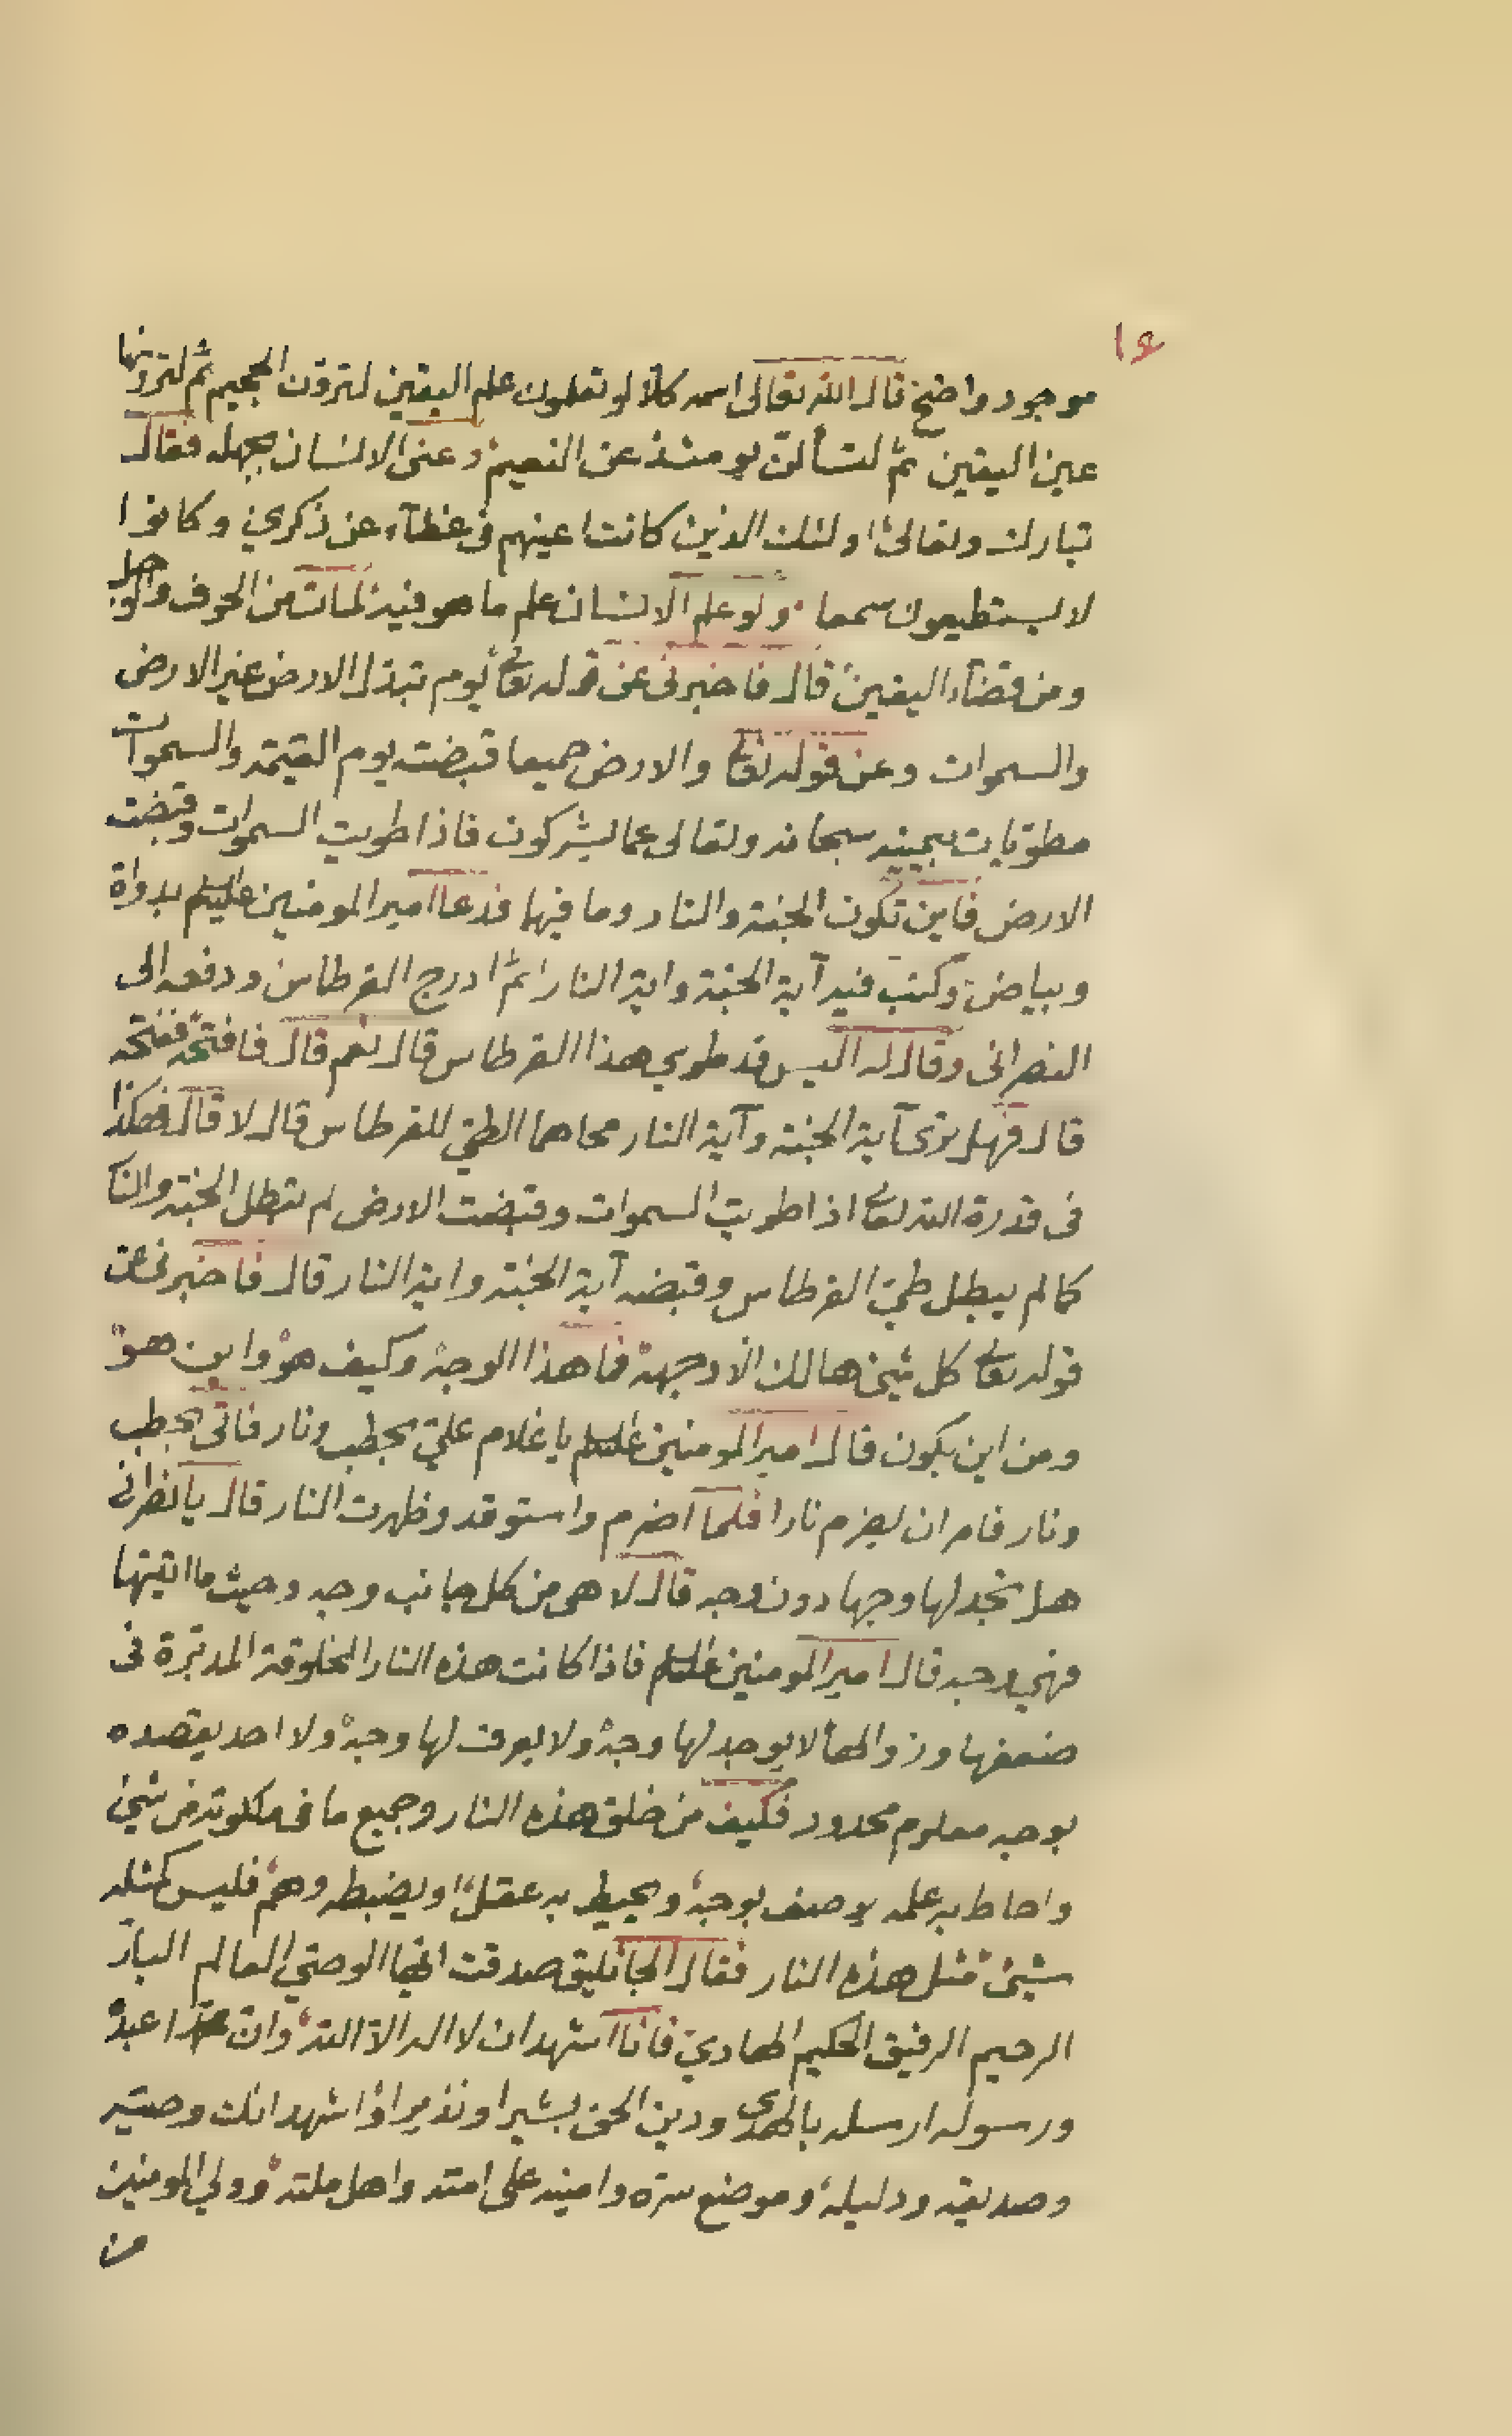 موجود واضح قال الله تعالى اسمه كلا لو تعلمون علم اليقين لترون الجحيم ثم لترونها
عين اليقين ثم لتسألن يومئذ عن النعيم وعنى الانسان بجهله فقال
تبارك وتعالى اولئك الذين كانت اعينهم في غطآء عن ذكري وكانوا
لا يستطيعون سمعا ولو علم الانسان علم ما هو فيه لمات من الخوف والوجل
ومن قضآء اليقين قال فاخبرني عن قوله تعالى يوم تبدل الارض غير الارض
والسموات وعن قوله تعالى والارض جميعا قبضته يوم القيمة والسموات
مطويات بيمينه سبحانه وتعالى عما يشركون فاذا طويت السموات وقبضت
الارض فاين تكون الجنة والنار وما فيهما فدعا امير المومنين عليه السلم بدواة
وبياض وكتب فيه آية الجنة واية النار ثم ادرج القرطاس ودفعه الى
النصراني وقال له اليس قد طوي هذا القرطاس قال نعم قال فافتحه ففتحه
قال فهل ترى آية الجنة وآية النار محاهما الطي للقرطاس قال لا قال فهكذا
في قدرة الله تعالى اذا طويت السموات وقبضت الارض لم تبطل الجنة والنا
كما لم يبطل طي القرطاس وقبضه آية الجنة واية النار قال فاخبرني عن
قوله تعالى كل شيئ هالك الا وجهه فما هذا الوجه وكيف هو واين هو
ومن اين يكون قال امير المومنين عليه السلم يا غلام علي بحطب ونار فاتى بحطب
ونار فامر ان يضرم نارا فلما اضرم واستوقد وظهرت النار قال يا نصراني
هل تجد لها وجها دون وجه قال لا هي من كل جانب وجه وحيث ما اتيتها
فهي وجه قال امير المومنين عليه السلم فاذا كانت هذه النار المخلوقة المدبرة في
ضعفها وزوالها لا يوجد لها وجه ولا يعرف لها وجه ولا احد يقصده
بوجه معلوم محدود فكيف من خلق هذه النار وجميع ما في ملكوته من شيئ
واحاط به علمه يوصف بوجه ويحيط به عقل او يضبطه وهم فليس كمثله
شيئ مثل هذه النار فقال الجاثليق صدقت ايها الوصي العالم البار
الرحيم الرفيق الحكيم الهادي فانا اشهد ان لا اله الا الله وان محمدا عبده
ورسوله ارسله بالهدى ودين الحق بشيرا ونذيرا واشهد انك وصيه
وصديقه ودليله وموضع سره وامينه على امته واهل ملته وولي المومنين
من